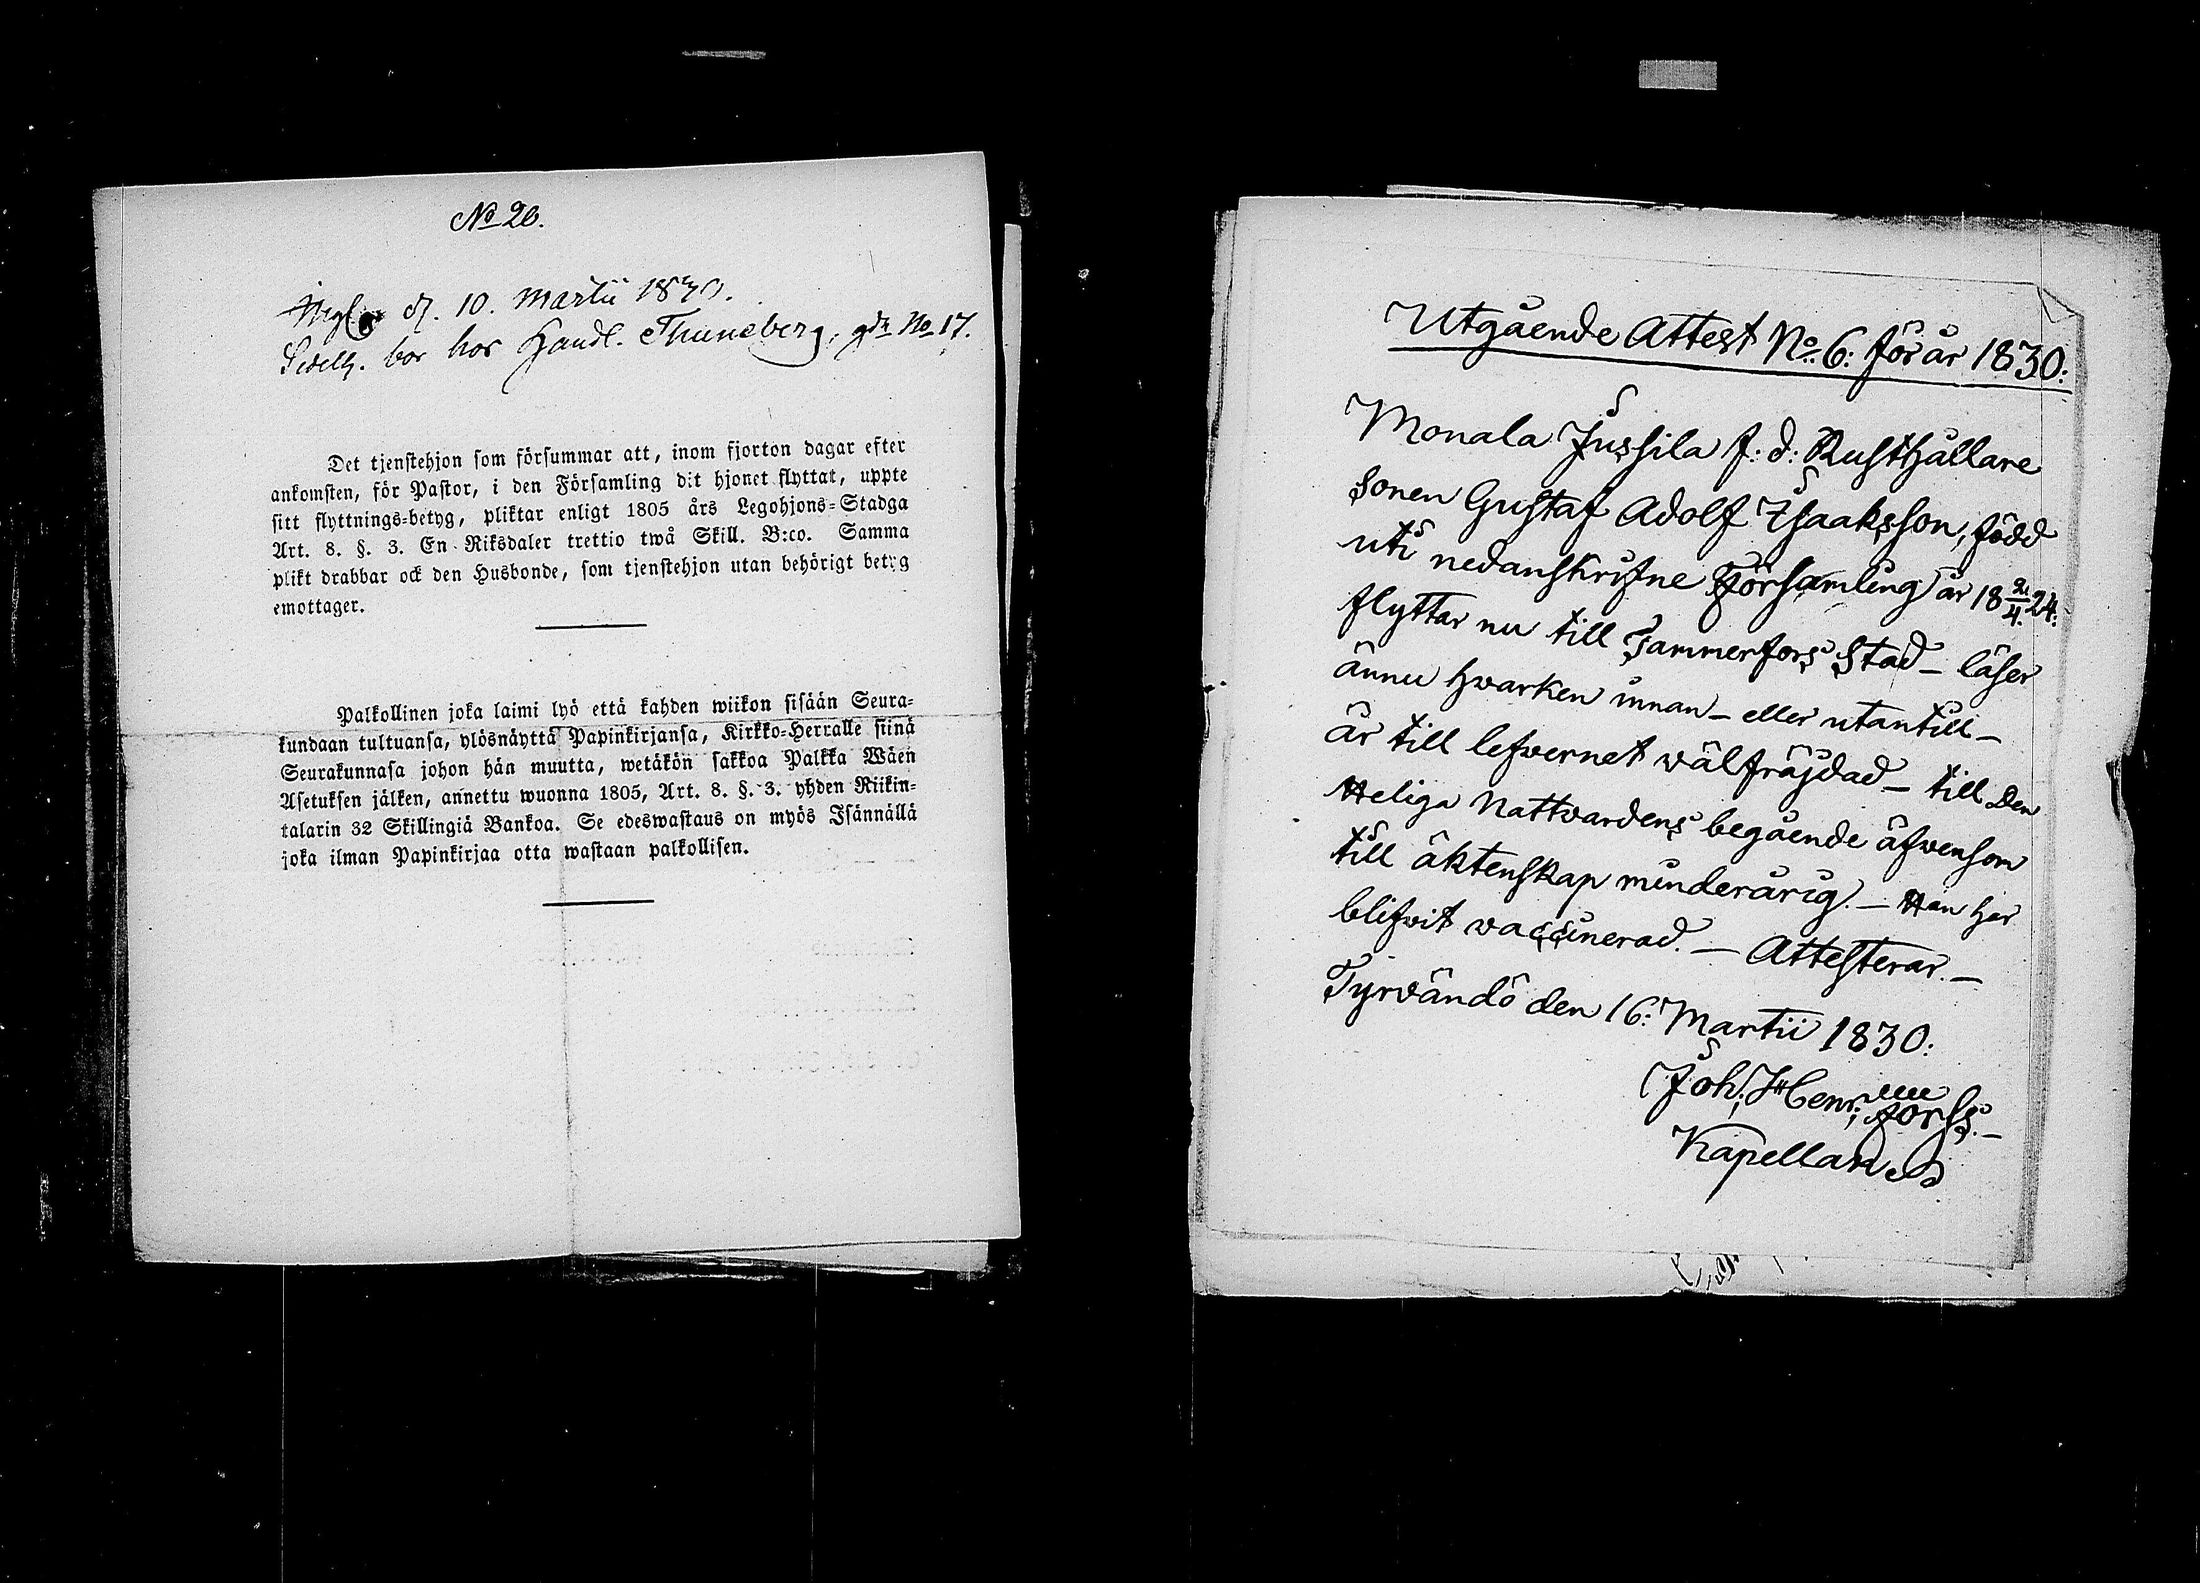 No 20.
d. 10. Martii 1830.
bor hos Handl. Thuneberg, gdn No 17.
Det tjenstehjon som försummar att, inom fjorton dagar efter
ankomsten, för Pastor, i den Församling dit hjonet flyttat, uppte
sitt flyttnings-betyg, pliktar enligt 1805 års Legohjons-Stadga
Art. 8. §. 3. En Riksdaler trettio twå Skill. B:co. Samma
plikt drabbar ock den Husbonde, som tjenstehjon utan behörigt betyg
emottager.
Palkollinen joka laimi lyö että kahden wiikon sisään Seura-
kundaan tultuansa, ylösnäyttä Papinkirjansa, Kirkko-Herralle siinä
Seurakunnasa johon hän muutta, wetäkön sakkoa Palkka Wäen
Asetuksen jälken, annettu wuonna 1805, Art. 8. §. 3. yhden Riikin-
talarin 32 Skillingiä Bankoa. Se edeswastaus on myös Isännällä
joka ilman Papinkirjaa otta wastaan palkollisen.
Utgående Attest No. 6: för år 1830:
Monala Jussila f: d: Rusthållare
sonen Gustaf Adolf Isaaksson, född
uti nedanskrifne Församling år 18 2/4 24:
flyttar nu till Tammerfors Stad – läser
ännu hwarken innan – eller utantill –
är till lefwernet wälfräjdad – till Den
Heliga Nattvardens begående äfwensom
till äktenskap minderårig. – Han har
blifwit vaccinerad. – Attesterar. –
Tyrvändö den 16: Martii 1830:
Joh: Henr: Forss. –
Kapellan